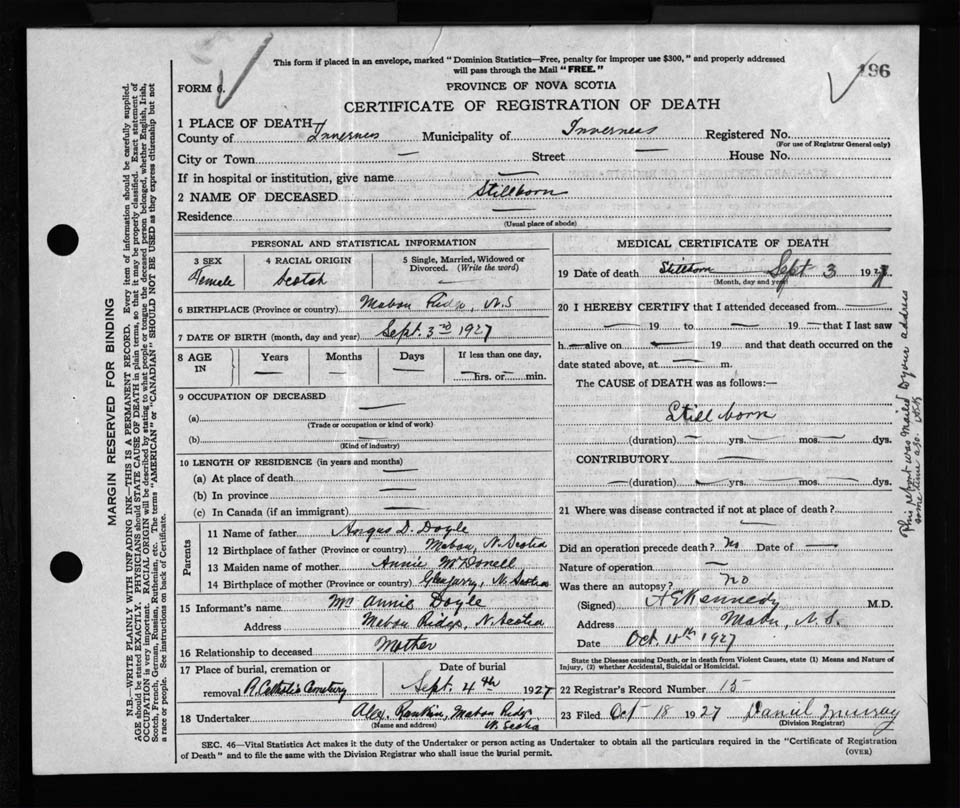 This form if placed in an envelope, marked "Dominion Statistics—Free, penalty for improper use $300," and properly addressed
will pass through the Mail "FREE."
196
FORM 6.
PROVINCE OF NOVA SCOTIA
CERTIFICATE OF REGISTRATION OF DEATH
1 PLACE OF DEATH—
County of Inverness Municipality of Inverness Registered No.
(For use of Registrar General only)
City or Town — Street — House No.
If in hospital or institution, give name —
2 NAME OF DECEASED Stillborn
Residence —
(Usual place of abode)
PERSONAL AND STATISTICAL INFORMATION
3 SEX 4 RACIAL ORIGIN 5 Single, Married, Widowed or
Divorced. (Write the word)
Female Scotch —
6 BIRTHPLACE (Province or country) Mabou Ridge, N.S
7 DATE OF BIRTH (month, day and year) Sept. 3rd 1927
8 AGE IN Years Months Days If less than one day,
— — — — hrs. or — min.
9 OCCUPATION OF DECEASED
(a) —
(Trade or occupation or kind of work)
(b) —
(Kind of industry)
10 LENGTH OF RESIDENCE (in years and months)
(a) At place of death —
(b) In province —
(c) In Canada (if an immigrant) —
Parents
11 Name of father Angus D. Doyle
12 Birthplace of father (Province or country) Mabou, N. Scotia
13 Maiden name of mother Annie McDonell
14 Birthplace of mother (Province or country) Glengarry, N. Scotia
15 Informant's name Mrs Annie Doyle
Address Mabou Ridge, N. Scotia
16 Relationship to deceased Mother
17 Place of burial, cremation or Date of burial
removal R. Catholic Cemetery Sept. 4th 1927
18 Undertaker Alex. Rankin, Mabou Ridge
(Name and address) N. Scotia
MEDICAL CERTIFICATE OF DEATH
19 Date of death Stillborn — Sept 3 1927
(Month, day and year)
20 I HEREBY CERTIFY that I attended deceased from —
— 19 — to — 19 — that I last saw
h — alive on — 19 — and that death occurred on the
date stated above, at — m.
The CAUSE of DEATH was as follows:—
Still born
(duration) — yrs. — mos. — dys.
CONTRIBUTORY —
(duration) — yrs. — mos. — dys.
21 Where was disease contracted if not at place of death?
—
Did an operation precede death? No Date of —
Nature of operation —
Was there an autopsy? No
(Signed) A E Kennedy M.D.
Address Mabou, N.S.
Date Oct. 11th 1927
State the Disease causing Death, or in death from Violent Causes, state (1) Means and Nature of
Injury, (2) whether Accidental, Suicidal or Homicidal.
22 Registrar's Record Number 15
23 Filed Oct-18 1927 Daniel Murray
(Division Registrar)
SEC. 46—Vital Statistics Act makes it the duty of the Undertaker or person acting as Undertaker to obtain all the particulars required in the "Certificate of Registration
of Death" and to file the same with the Division Registrar who shall issue the burial permit.
(OVER)
MARGIN RESERVED FOR BINDING
N.B.—WRITE PLAINLY WITH UNFADING INK—THIS IS A PERMANENT RECORD. Every item of information should be carefully supplied.
AGE should be stated EXACTLY. PHYSICIANS should STATE CAUSE OF DEATH in plain terms, so that it may be properly classified. Exact statement of
OCCUPATION is very important. RACIAL ORIGIN will be described by stating to what people or tongue the deceased person belonged, whether English, Irish,
Scotch, French, German, Russian, Ruthenian, etc. The terms "AMERICAN" or "CANADIAN" SHOULD NOT BE USED as they express citizenship but not
a race or people. See instructions on back of Certificate.
This report was mailed to your address
some time ago.